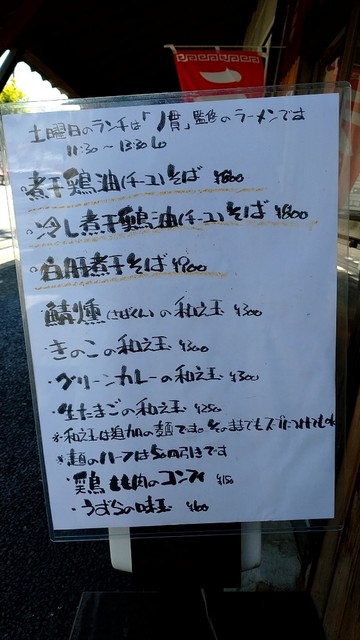 土曜日のランチは「丿貫」監修のラーメンです
11:30～13:30LO
・煮干鶏油(チーユ)そば ¥800
・冷し煮干鶏油(チーユ)そば ¥800
・白肝煮干そば ¥900
・鯖燻(さばくん)の和え玉 ¥300
・きのこの和え玉 ¥300
・グリーンカレーの和え玉 ¥300
・生たまごの和え玉 ¥250
※和え玉は追加の麺です。そのままでもスープにつけても
※麺のハーフは50円引きです
・鶏もも肉のコンフィ ¥150
・うずらの味玉 ¥100